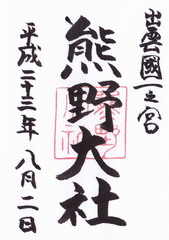 出雲國一之宮
熊野大社
平成二十三年八月二日